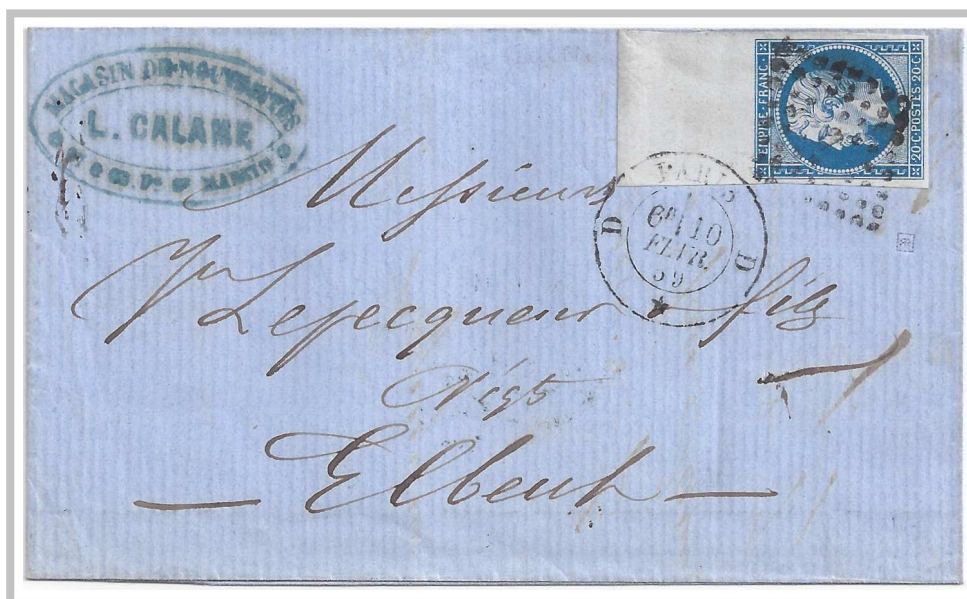 MAGASIN DE NOUVEAUTÉS
L. CALAME
MARTIN
EMPIRE FRANC.
20·C·POSTES·20·C
PARIS
D D
6E 10
FEVR.
59
Messieurs
Lefecqueur fils
Négts
Elbeuf